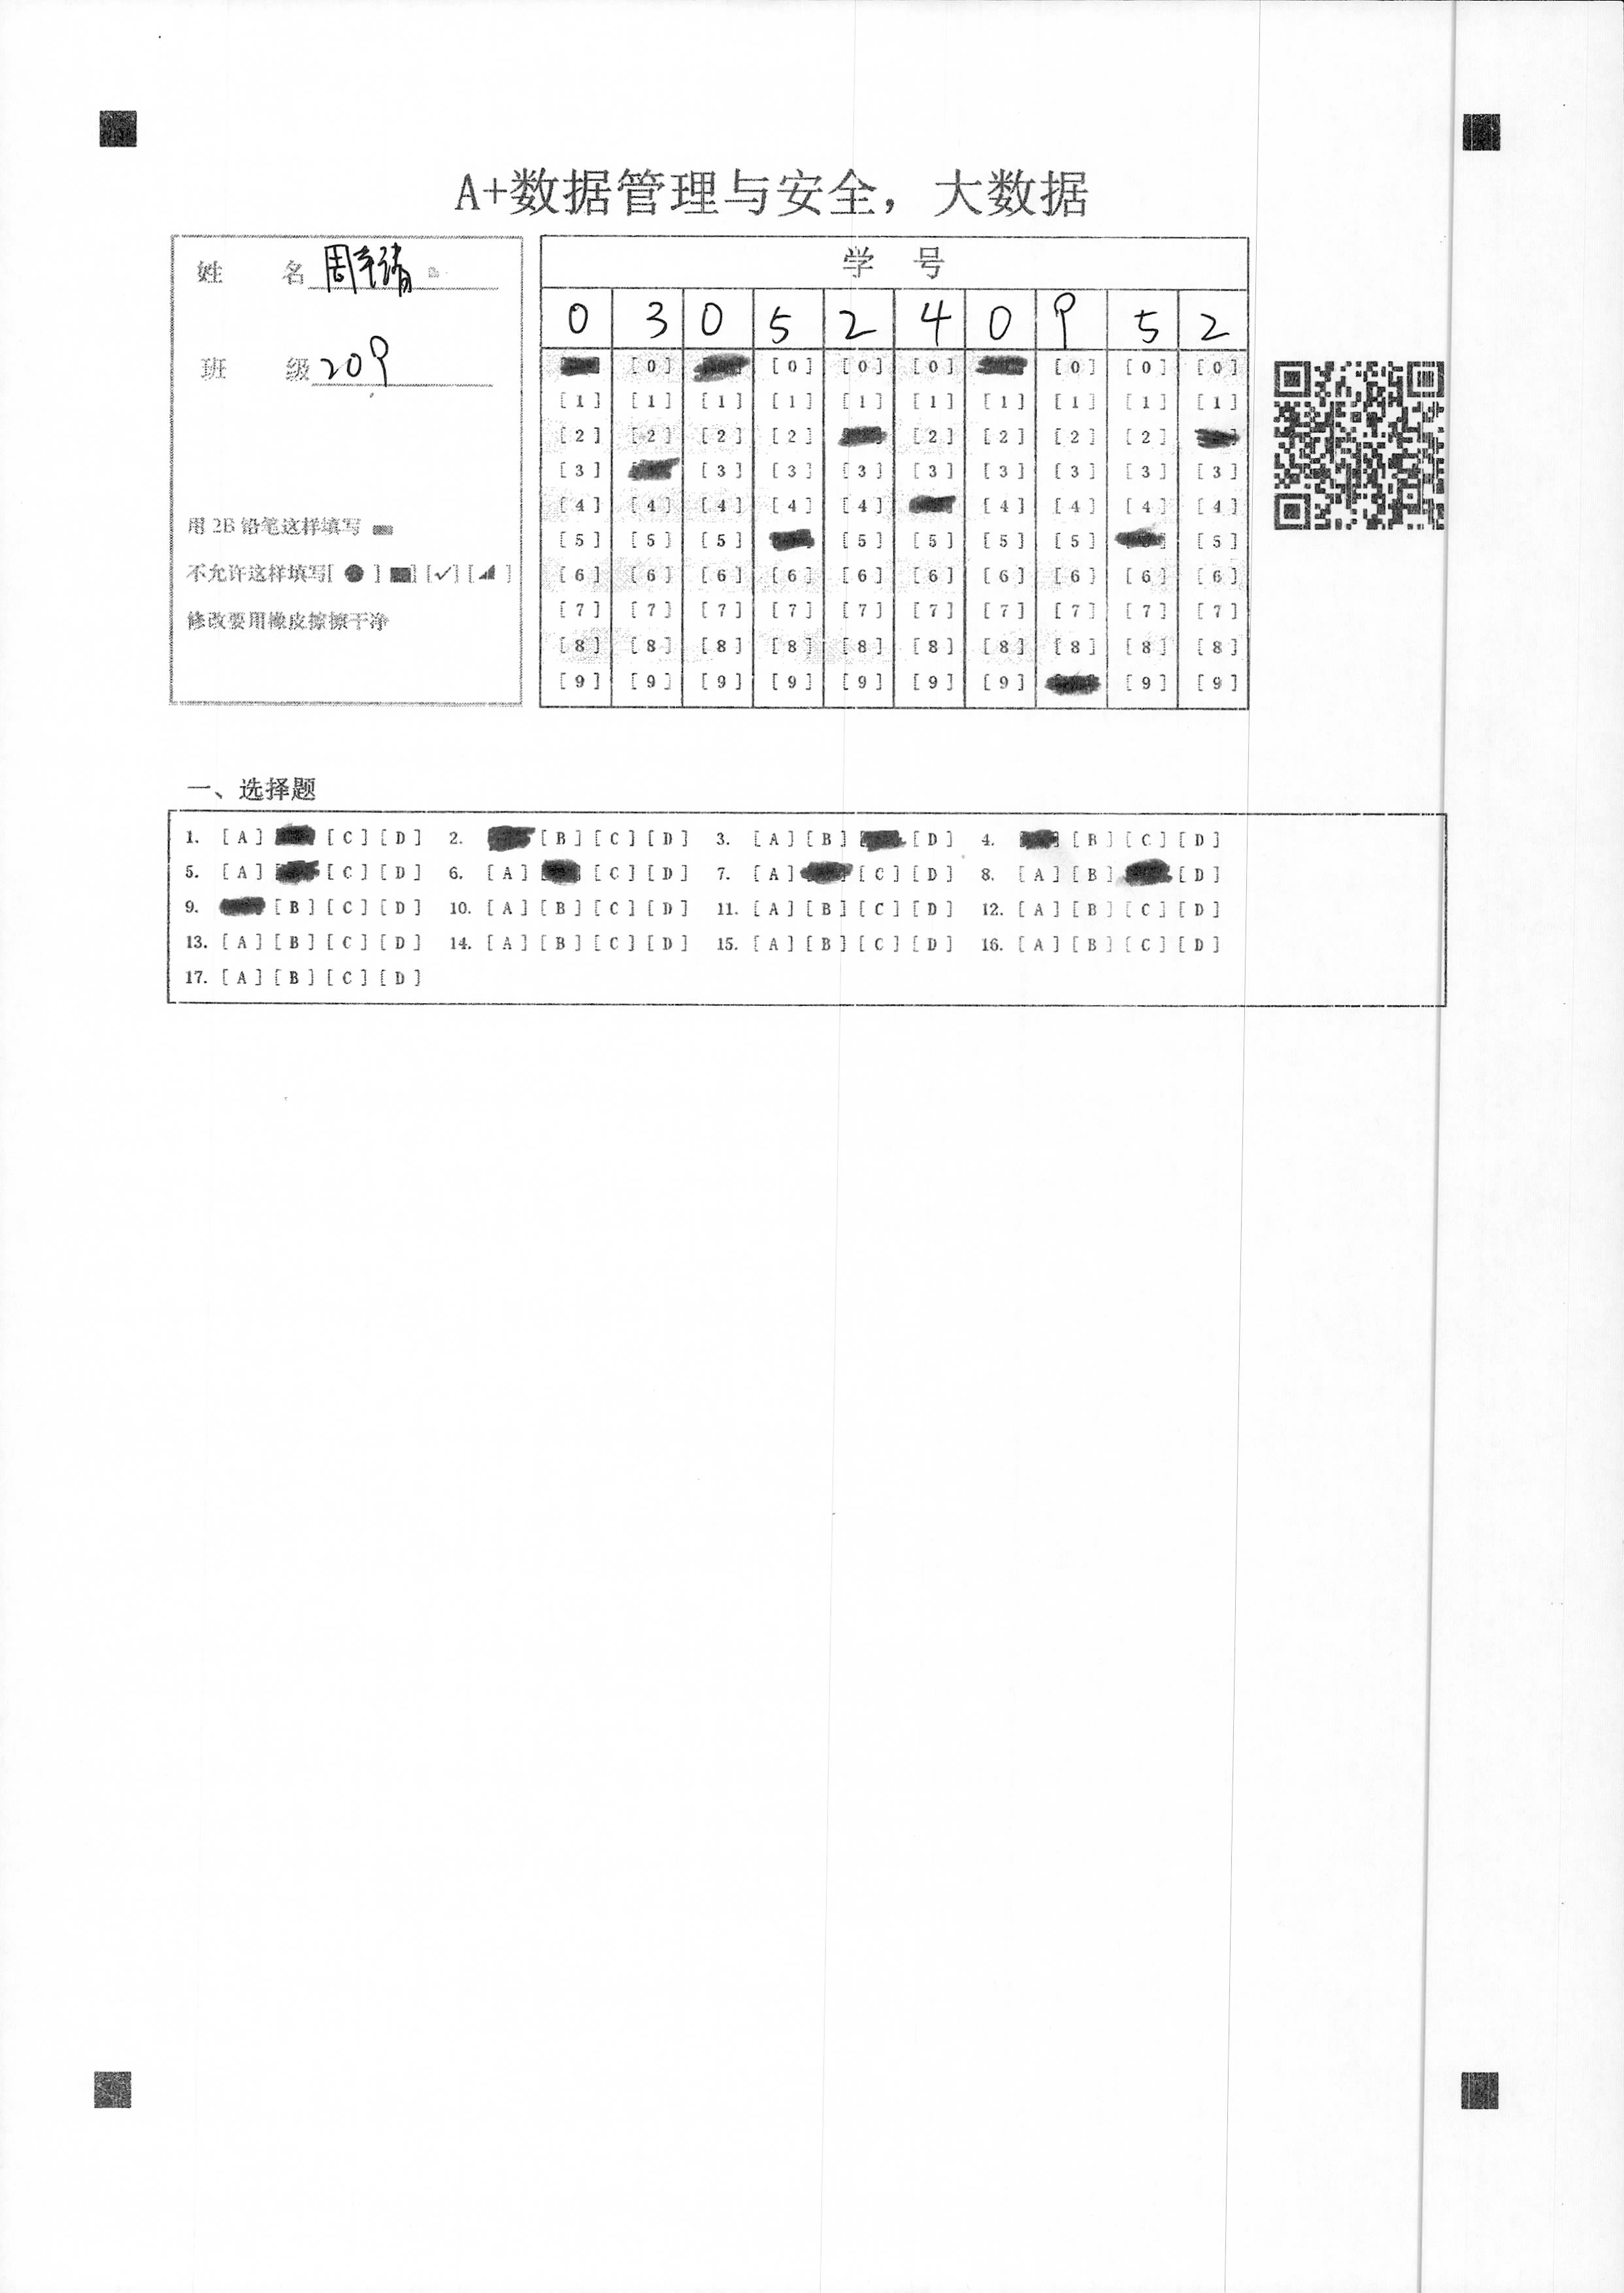 A+数据管理与安全，大数据
姓 名 周
班 级 209
用 2B 铅笔这样填写
不允许这样填写[ ● ] [✓] [ ]
修改要用橡皮擦擦干净
学 号
0 3 0 5 2 4 0 9 5 2
[0] [0] [0] [0] [0] [0] [0]
[1] [1] [1] [1] [1] [1] [1] [1] [1] [1]
[2] [2] [2] [2] [2] [2] [2] [2]
[3] [3] [3] [3] [3] [3] [3] [3] [3]
[4] [4] [4] [4] [4] [4] [4] [4] [4]
[5] [5] [5] [5] [5] [5] [5] [5]
[6] [6] [6] [6] [6] [6] [6] [6] [6] [6]
[7] [7] [7] [7] [7] [7] [7] [7] [7] [7]
[8] [8] [8] [8] [8] [8] [8] [8] [8] [8]
[9] [9] [9] [9] [9] [9] [9] [9] [9]
一、选择题
1. [A] [C] [D] 2. [B] [C] [D] 3. [A] [B] [D] 4. [B] [C] [D]
5. [A] [C] [D] 6. [A] [C] [D] 7. [A] [C] [D] 8. [A] [B] [D]
9. [B] [C] [D] 10. [A] [B] [C] [D] 11. [A] [B] [C] [D] 12. [A] [B] [C] [D]
13. [A] [B] [C] [D] 14. [A] [B] [C] [D] 15. [A] [B] [C] [D] 16. [A] [B] [C] [D]
17. [A] [B] [C] [D]